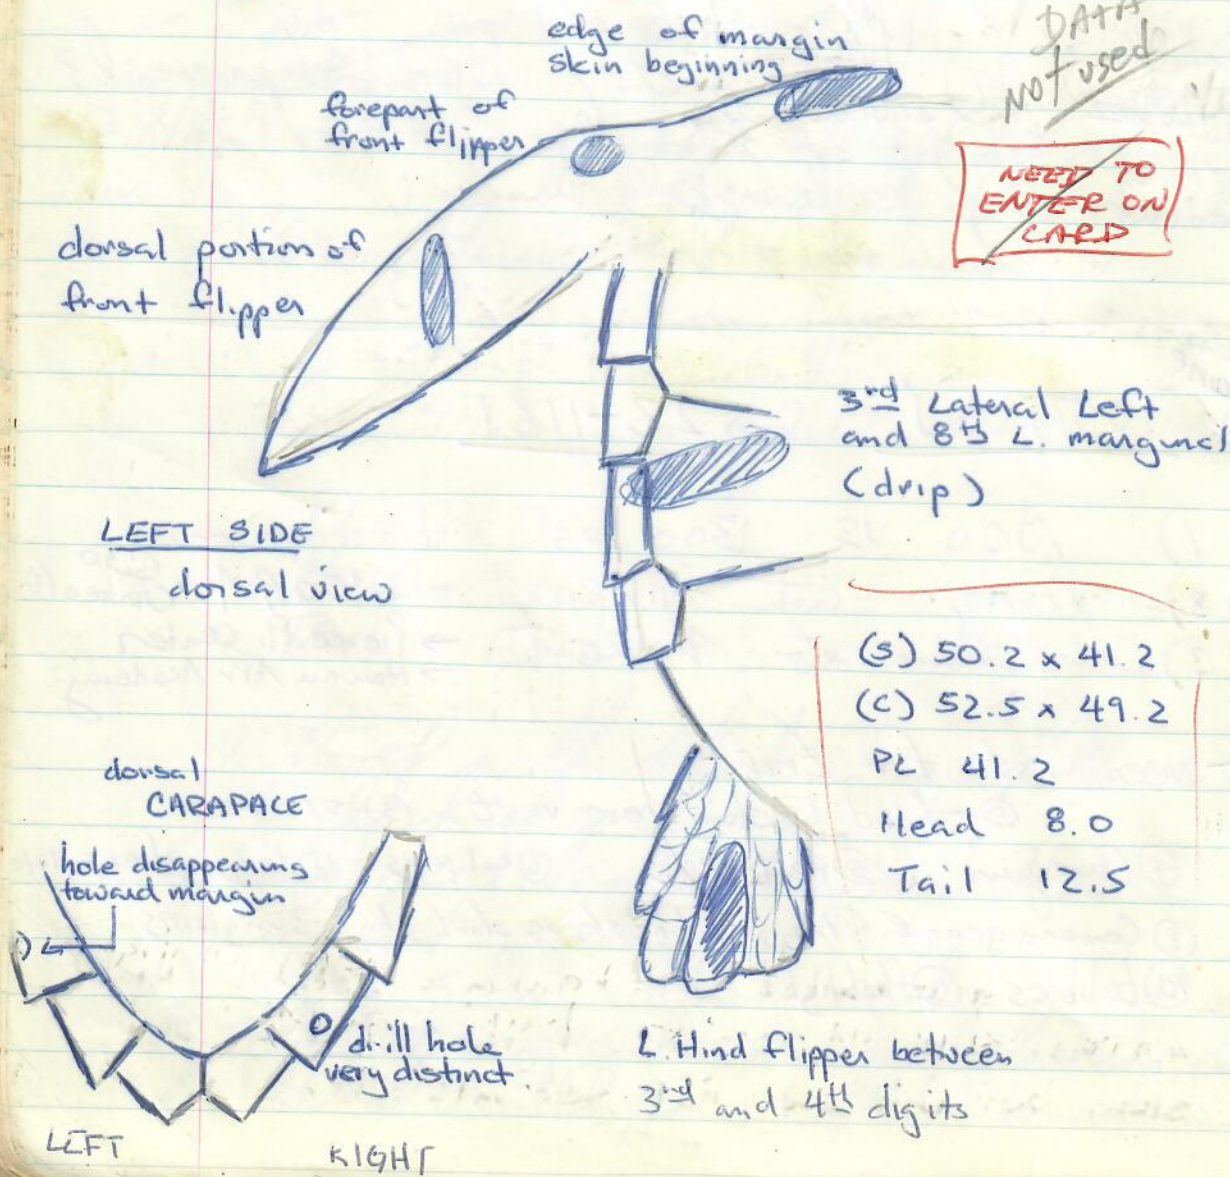 DATA
NOT used
edge of margin
skin beginning
forepart of
front flipper
NEED TO
ENTER ON
CARD
dorsal portion of
front flipper
3rd Lateral Left
and 8th L. marginal
(drip)
LEFT SIDE
dorsal view
(S) 50.2 x 41.2
(C) 52.5 x 49.2
PL 41.2
Head 8.0
Tail 12.5
dorsal
CARAPACE
hole disappearing
toward margin
drill hole
very distinct.
L. Hind flipper between
3rd and 4th digits
LEFT
RIGHT